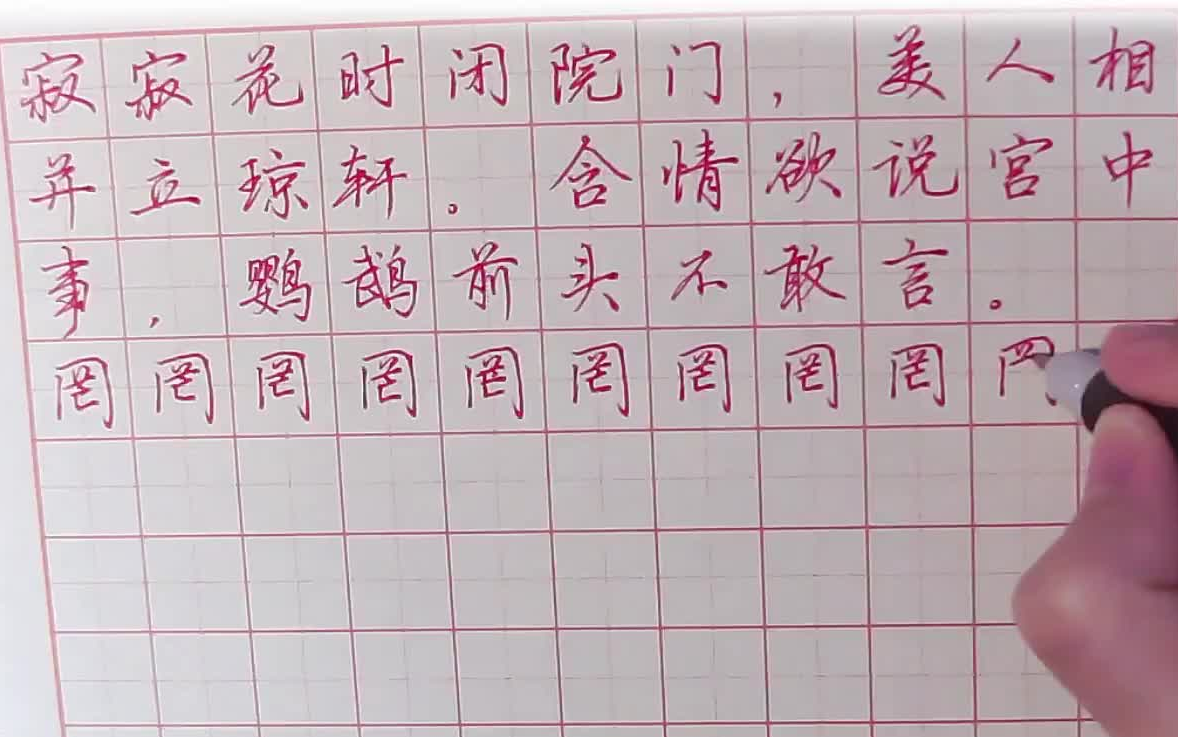 寂寂花时闭院门，美人相
并立琼轩。含情欲说宫中
事，鹦鹉前头不敢言。
罔罔罔罔罔罔罔罔罔